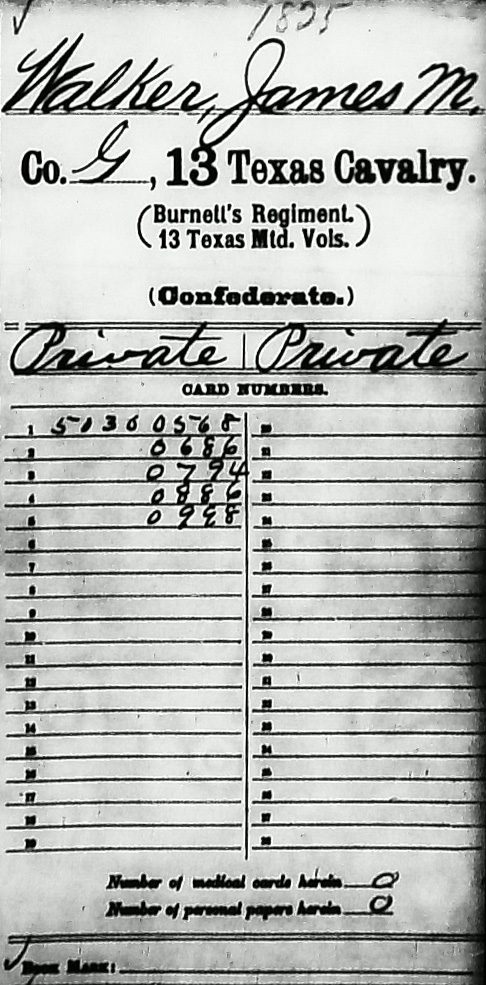 1825
Walker, James M.
Co. G, 13 Texas Cavalry.
(Burnett's Regiment.
13 Texas Mtd. Vols.)
(Confederate.)
Private | Private
CARD NUMBERS.
1 51360568 20
2 0686 21
3 0794 22
4 0886 23
5 0998 24
6 25
7 26
8 27
9 28
10 29
11 30
12 31
13 32
14 33
15 34
16 35
17 36
18 37
19 38
Number of medical cards herein 0
Number of personal papers herein 0
BOOK MARK: